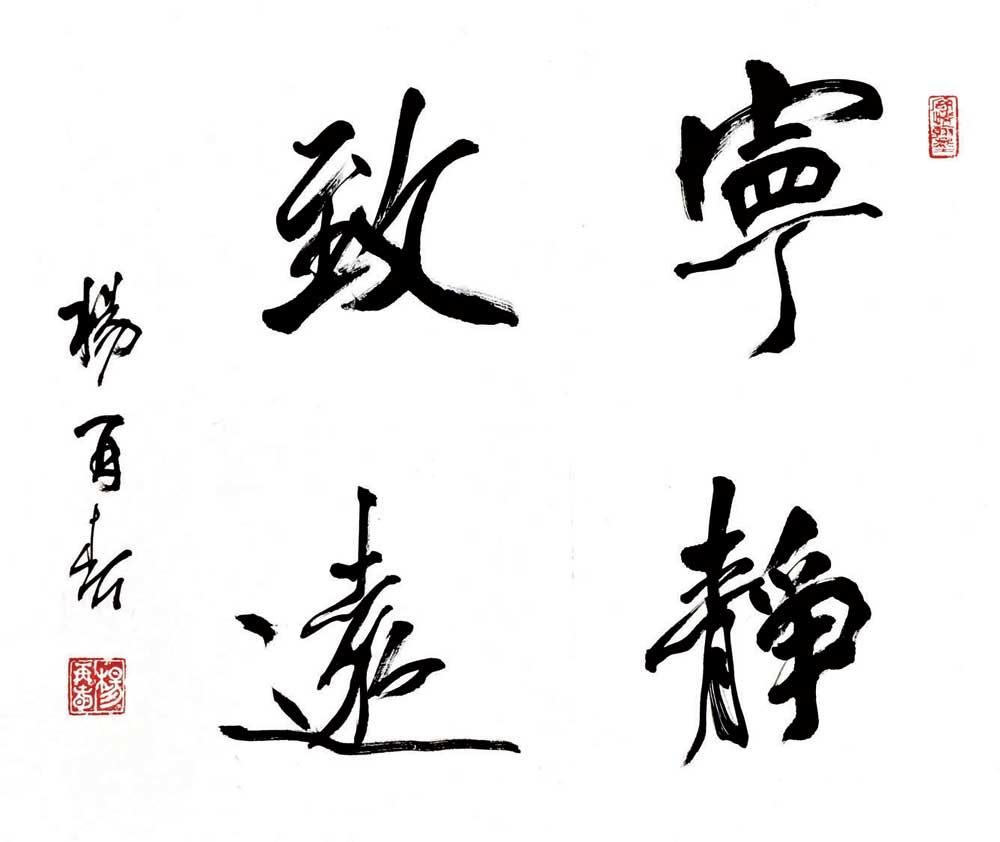 寧靜
致遠
楊再春
楊再春